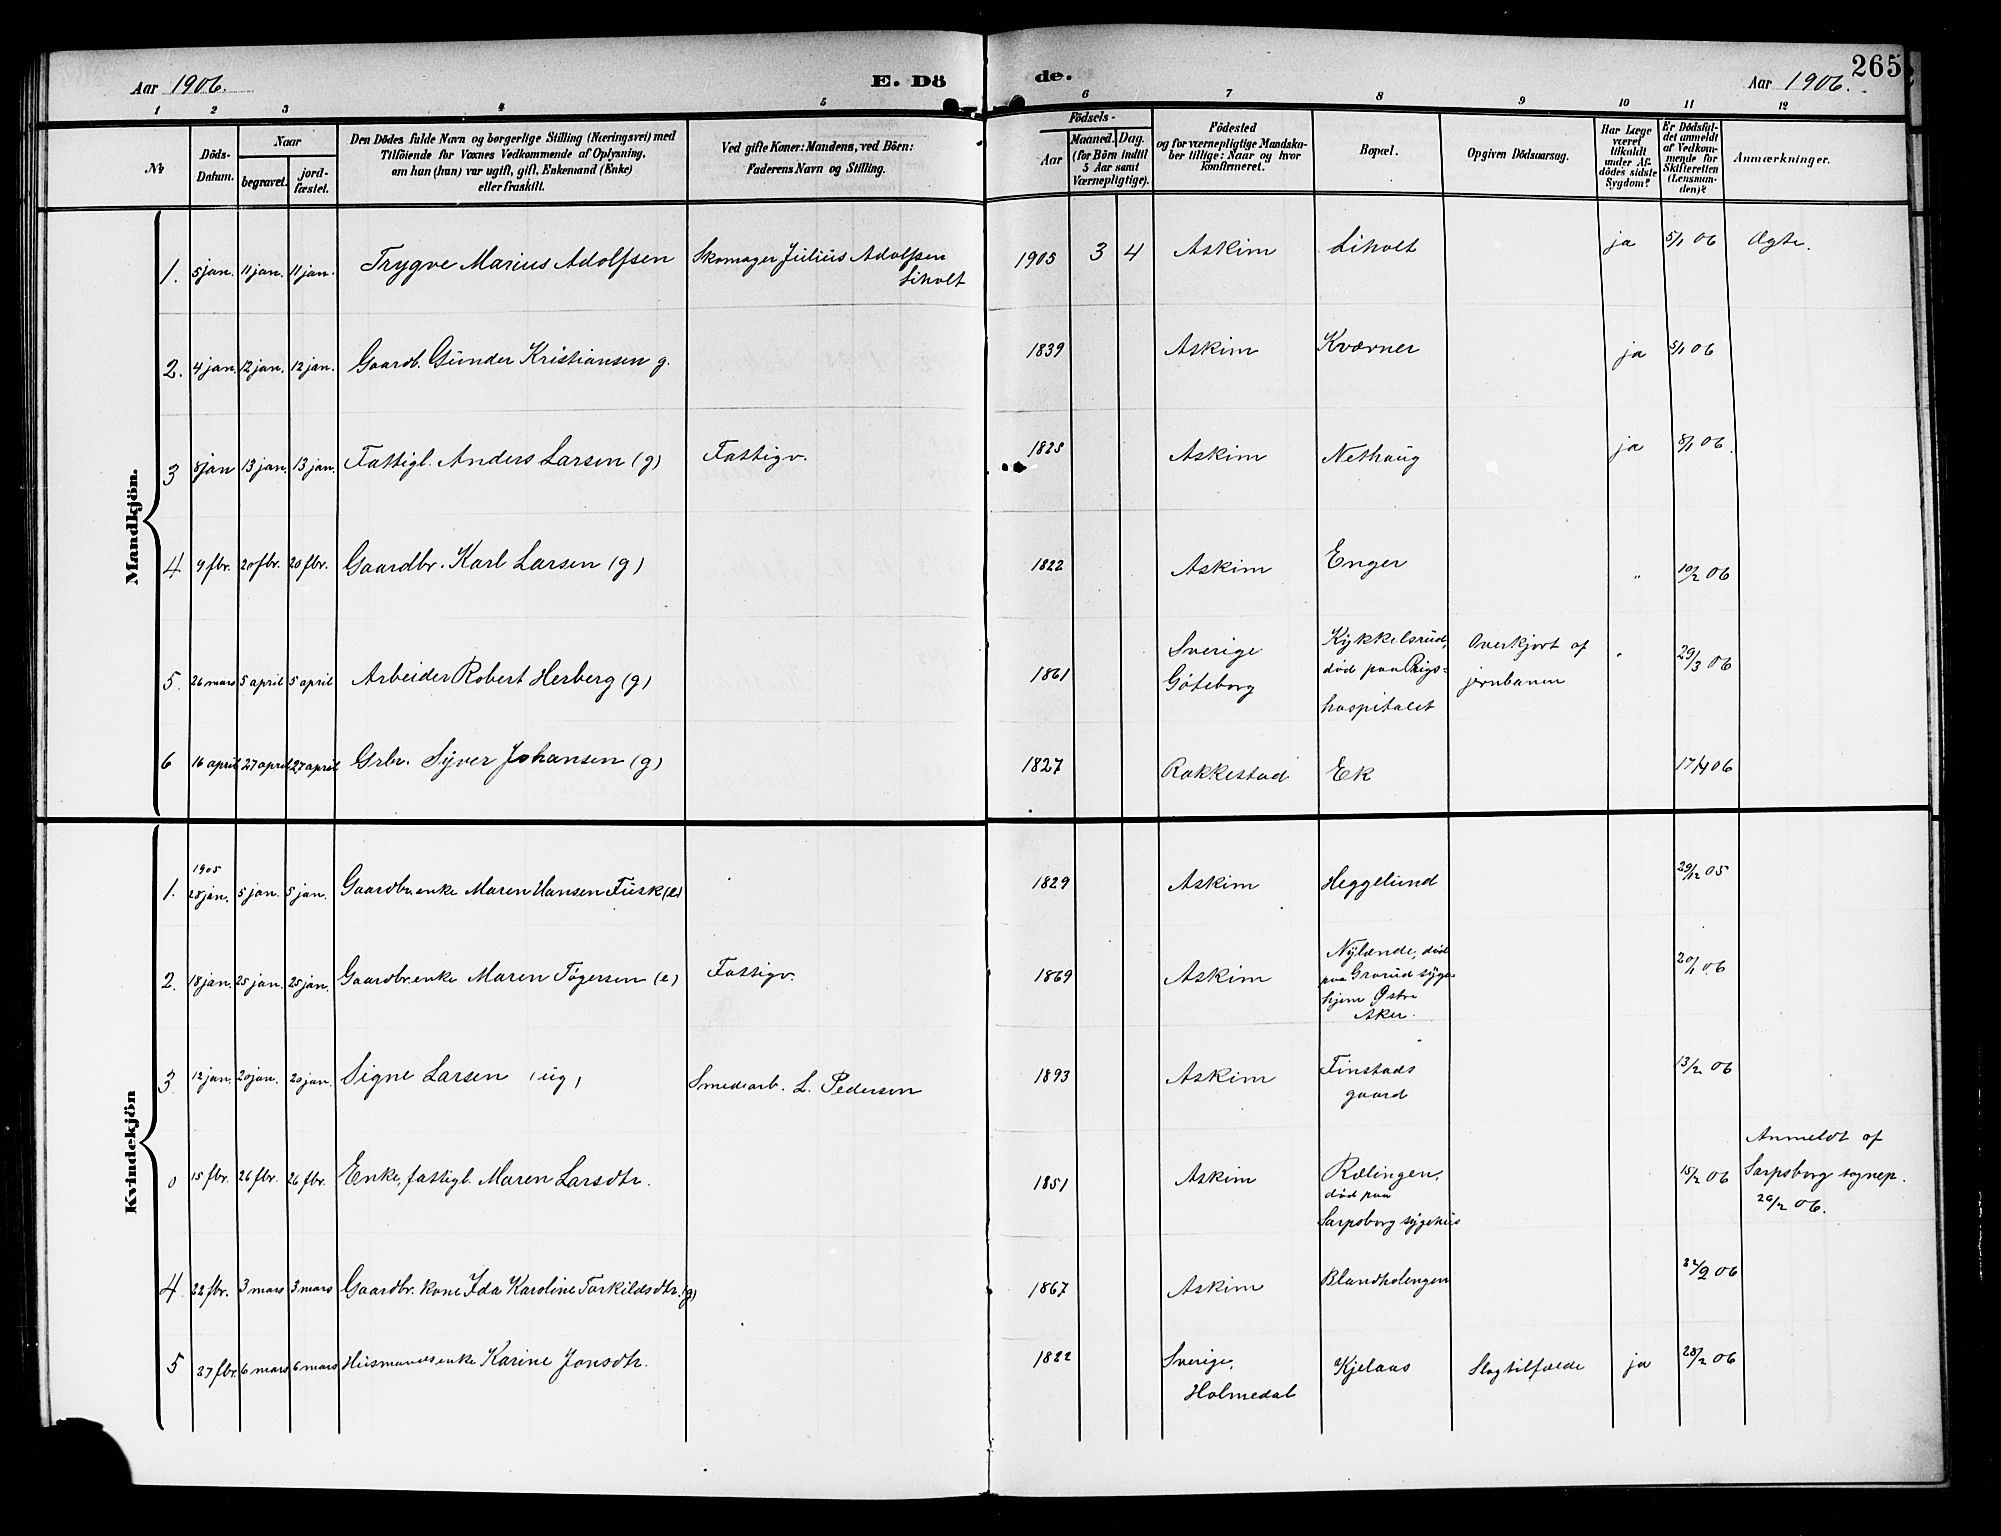 265
Aar 1906. E. Dö de. Aar 1906.
1 2 3 4 5 6 7 8 9 10 11 12
№
Döds-Datum.
Naar
begravet.
jordfæstet.
Den Dödes fulde Navn og borgerlige Stilling (Næringsvei) med
Tilföiende for Voxnes Vedkommende af Oplysning,
om han (hun) var ugift, gift, Enkemand (Enke)
eller fraskilt.
Ved gifte Koner: Mandens, ved Börn:
Faderens Navn og Stilling.
Födsels-
Aar
Maaned. Dag.
(for Börn indtil
5 Aar samt
Værnepligtige).
Födested
og for værnepligtige Mandska-
ber tillige: Naar og hvor
konfirmeret.
Bopæl.
Opgiven Dödsaarsag.
Har Læge
været
tilkaldt
under Af-
dödes sidste
Sygdom?
Er Dödsfal-
det anmeldt
af Vedkom-
mende for
Skifteretten
(Lensman-
den)?
Anmærkninger.
Mandkjön.
1. 5 jan. 11 jan. 11 jan. Trygve Marius Adolfsen Skomager Julius Adolfsen
Liholt
1905 3 4 Askim Liholt ja 5/1 06 Ægte.
2. 4 jan. 12 jan. 12 jan. Gaardb. Gunder Kristiansen g. 1839 Askim Kværner ja 5/1 06
3 8 jan 13 jan. 13 jan. Fattigl. Anders Larsen (g) Fattigv. 1825 Askim Nethaug ja 8/1 06.
4 9 fbr. 20 fbr. 20 fbr. Gaardbr. Karl Larsen (g) 1822 Askim Enger " 10/2 06
5. 26 mars 5 april 5 april Arbeider Robert Herberg (g) 1861 Sverige
Göteborg
Kykkelsrud,
död paa Rigs-
hospitalet
Overkjørt af
jernbanen
29/3 06
6 16 april 27 april 27 april Grbr. Syver Johansen (g) 1827 Rakkestad Ek 17/4 06
Kvindekjön
1. 1905
28 jan. 5 jan. 5 jan. Gaardbr.enke Maren Hansen Fusk (e) 1829 Askim Heggelund 29/12 05
2. 18 jan. 25 jan. 25 jan. Gaardbr.enke Maren Tøgersen (e) Fattigv. 1869 Askim Nylænde, död
paa Grorud syge-
hjem Østre
Aker.
20/1 06
3 12 jan. 20 jan. 20 jan. Signe Larsen (ug) Smedearb. L. Pedersen 1893 Askim Finstads
gaard
13/2 06
0 15 fbr. 26 fbr. 26 fbr. Enke, fattigl. Maren Larsdtr. 1851 Askim Rælingen,
død paa
Sarpsborg sygehus
15/2 06
Anmeldt af
Sarpsborg sognep.
26/2 06.
4. 22 fbr. 3 mars 3 mars Gaardbr. kone Ida Karoline Torkildsdtr. (g) 1867 Askim Blandholengen 22/2 06
5 27 fbr. 6 mars 6 mars Husmandsenke Karine Jonsdtr. 1822 Sverige,
Holmedal
Kjelaas Slagtilfælde ja 28/2 06